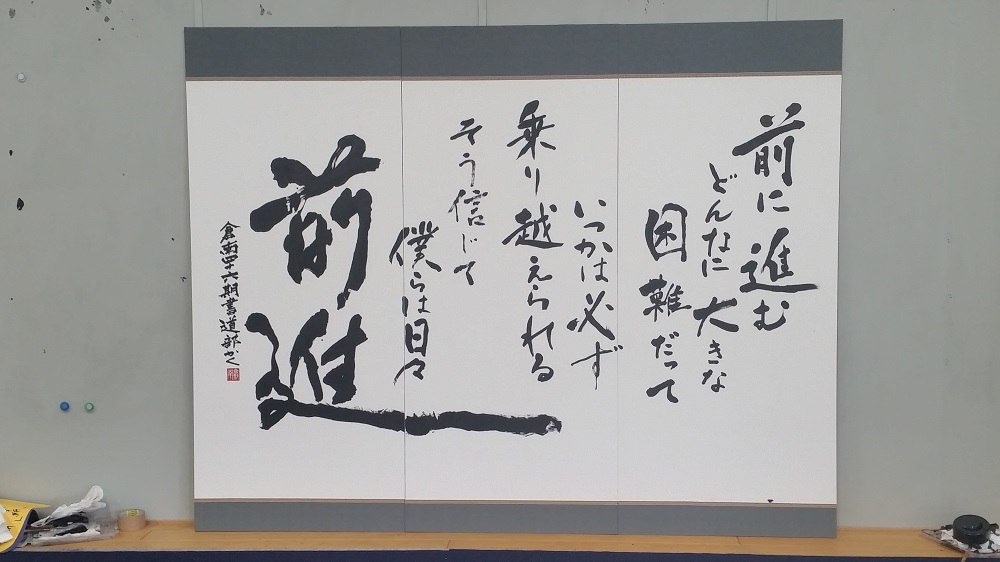 前に進む
どんなに大きな
困難だって
いつかは必ず
乗り越えられる
そう信じて
僕らは日々
前進
倉南四十六期書道部かく